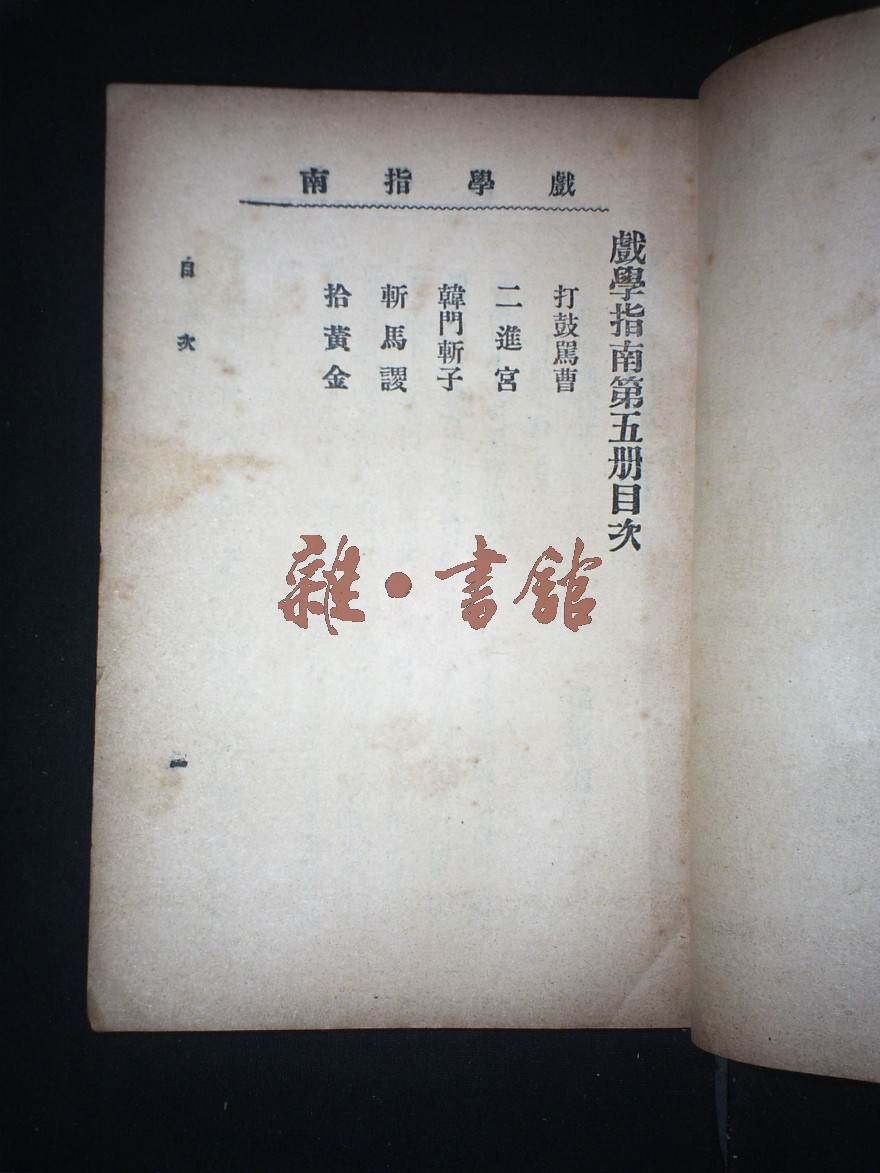 戲學指南
戲學指南第五册目次
打鼓罵曹
二進宮
韓門斬子
斬馬謖
拾黃金
目次
一
雜·書館